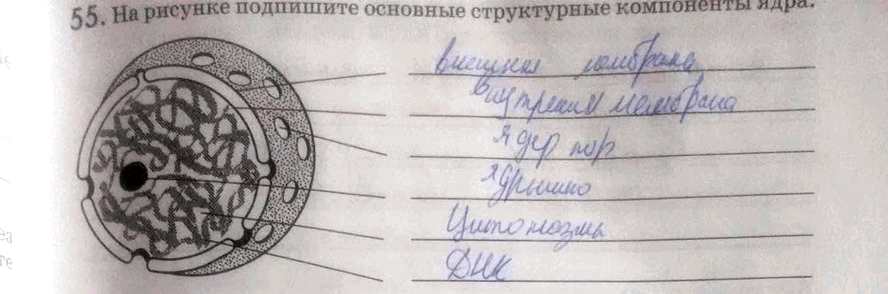 55. На рисунке подпишите основные структурные компоненты ядра.
внешняя мембрана
внутренняя мембрана
ядер пор
ядрышко
Цитоплазма
ДНК